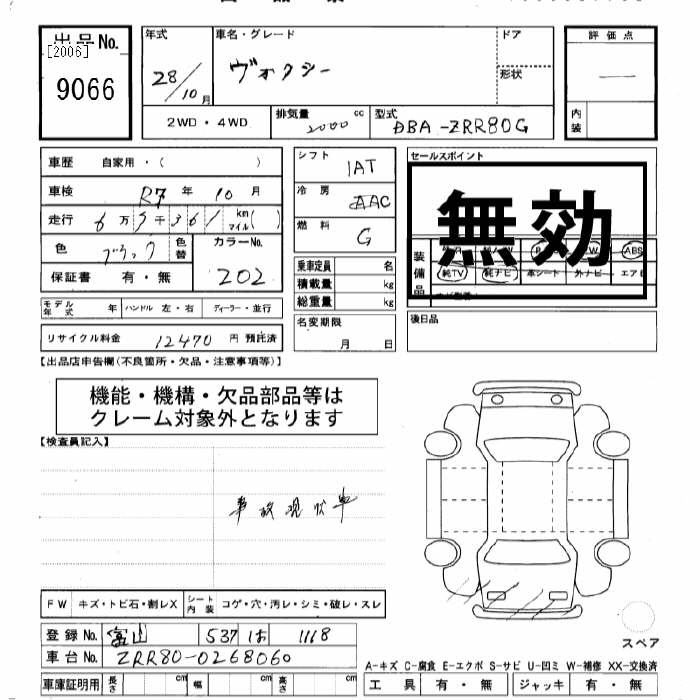 出品No.
[2006]
9066
年式
28/10月
車名・グレード
ヴォクシー
ドア
形状
評価点
内装
2WD・4WD
排気量 2000 cc
型式 DBA-ZRR80G
車歴 自家用・( )
車検 R7年10月
走行 6万5千361 km マイル( )
色 ブラック 色替
カラーNo. 202
保証書 有・無
モデル年式 年 ハンドル 左・右 ディーラー・並行
リサイクル料金 12470 円 預託済
シフト 1AT
冷房 AAC
燃料 G
乗車定員 名
積載量 kg
総重量 kg
名変期限
月 日
セールスポイント
無効
装備品
ABS
純TV 純ナビ 本シート 外ナビ エアB
後日品
【出品店申告欄(不良箇所・欠品・注意事項等)】
機能・機構・欠品部品等は
クレーム対象外となります
【検査員記入】
事故現状車
FW キズ・トビ石・割レX シート内装 コゲ・穴・汚レ・シミ・破レ・スレ
登録No. 富山 537 は 1118
車台No. ZRR80-0268060
車庫証明用 長さ cm 幅 cm 高さ cm
スペア
A-キズ C-腐食 E-エクボ S-サビ U-凹ミ W-補修 XX-交換済
工具 有・無 ジャッキ 有・無